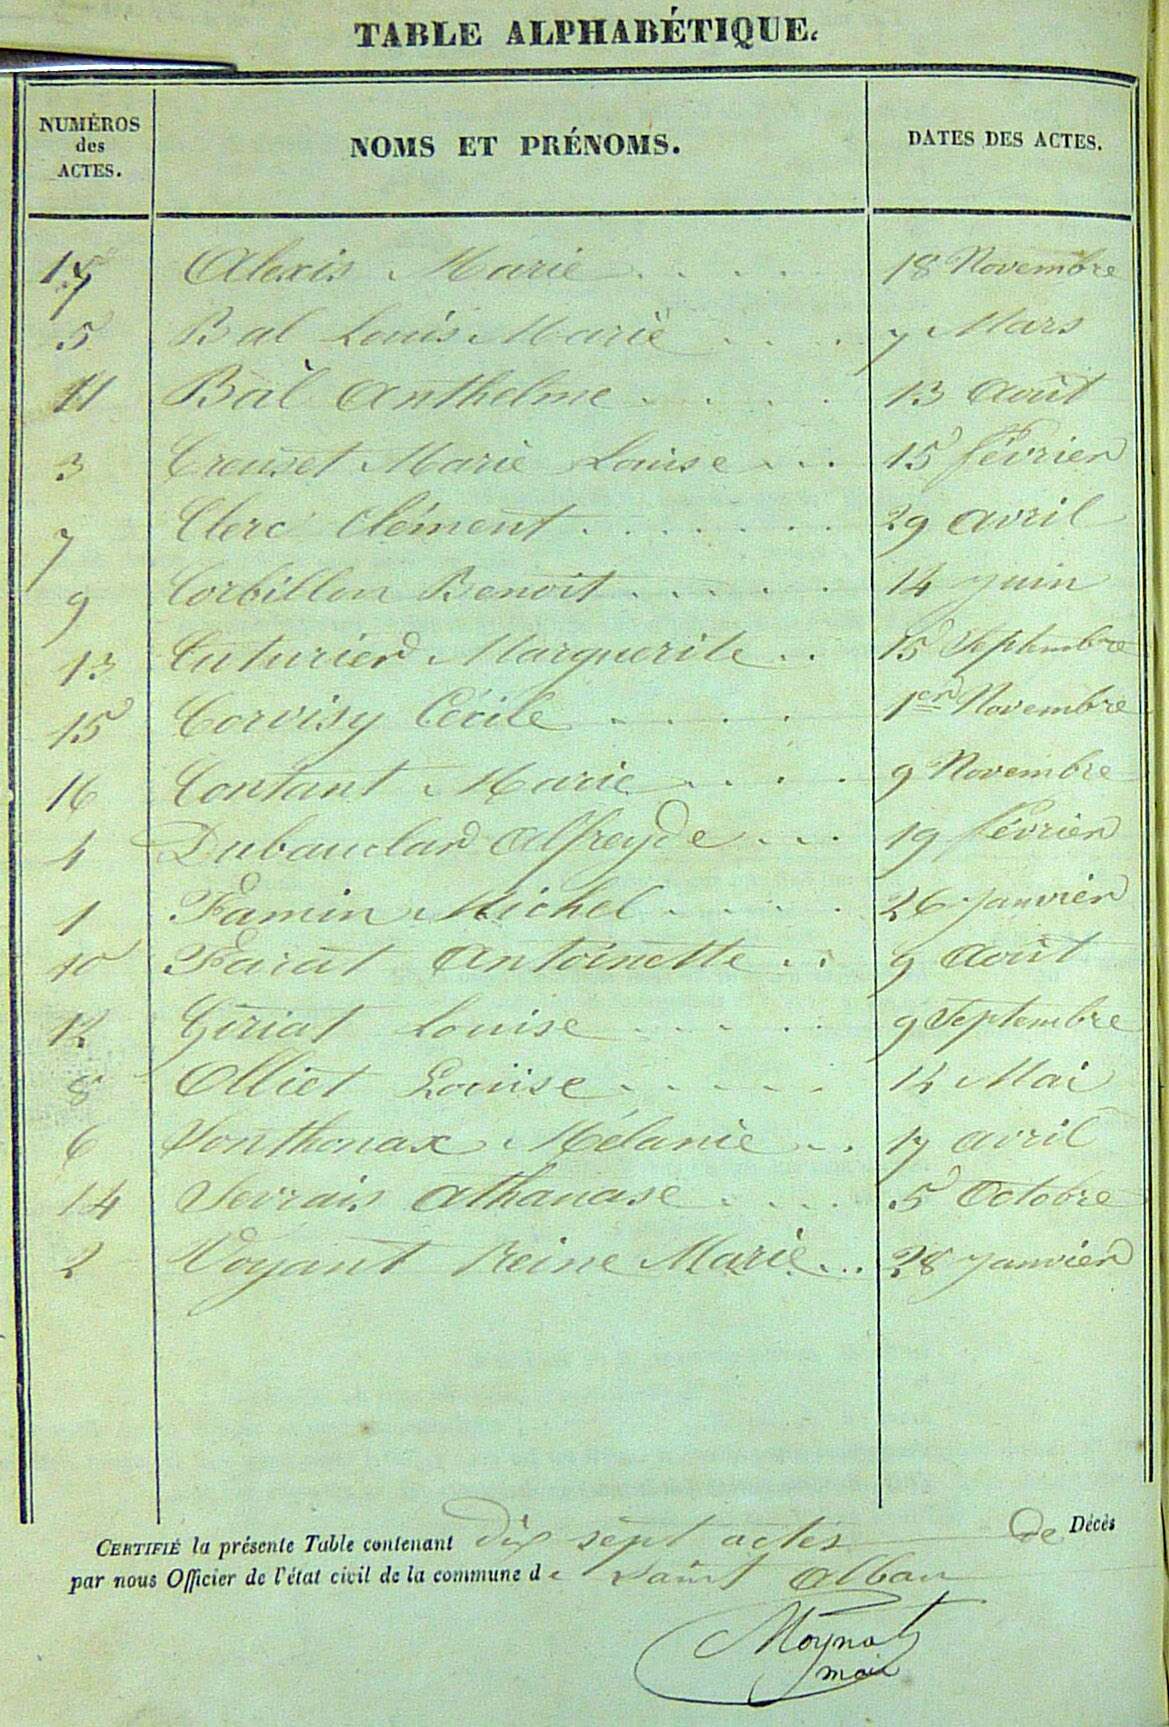 TABLE ALPHABÉTIQUE.
NUMÉROS des ACTES. NOMS ET PRÉNOMS. DATES DES ACTES.
17 Alexis Marie . . . . . 18 Novembre
5 Bal Louis Marie . . . . 7 Mars
11 Bal Anthelme . . . . 13 Août
3 Creuset Marie Louise . . . 15 février
7 Clerc Clément . . . . . . . 29 avril
9 Corbillon Benoit . . . . . 14 Juin
13 Cuturier Marguerite . . 15 Septembre
15 Corvisy Cécile . . . . 1er Novembre
16 Contant Marie . . . . 9 Novembre
4 Dubauclard Alfreyde . . . 19 février
1 Famin Michel . . . . 26 Janvier
10 Farat Antoinette . . 9 Août
12 Giriat Louise . . . . . 9 Septembre
8 Olliet Louise . . . . . 14 Mai
6 Sonthonax Mélanie . . 17 avril
14 Servais Athanase . . . . 5 Octobre
2 Voyant Reine Marie . . . 28 Janvier
CERTIFIÉ la présente Table contenant dix sept actes de Décès
par nous Officier de l'état civil de la commune de Saint Alban
Moynat
maire